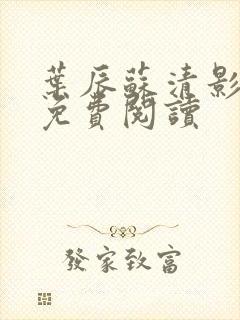 葉辰蘇清影
免費閱讀
發家致富